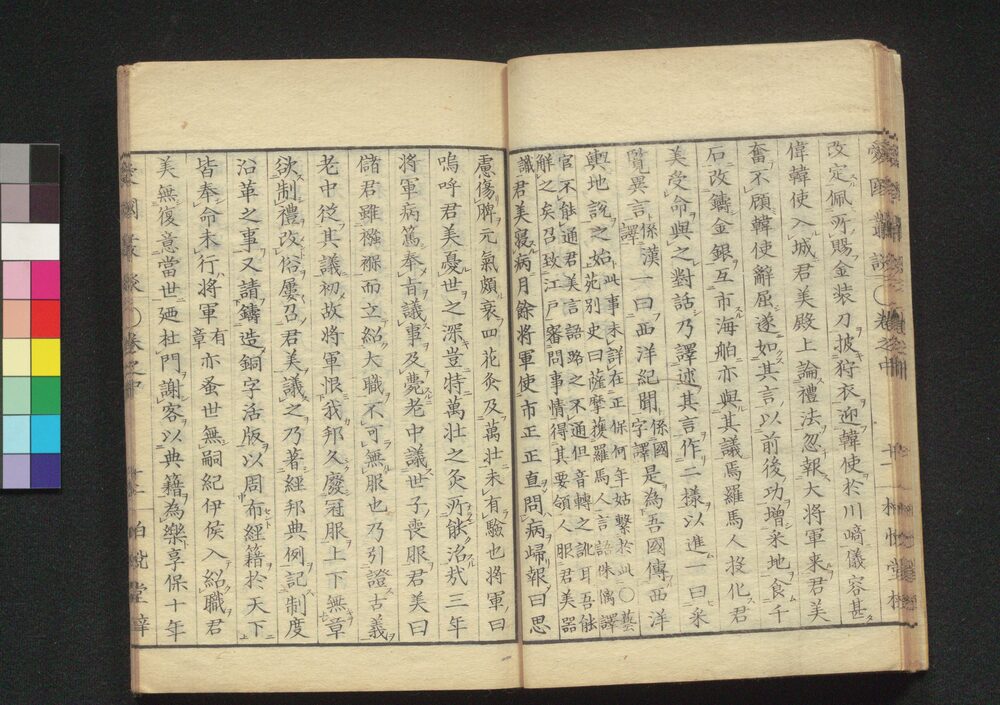 改定佩所賜金装刀披狩衣迎韓使於川﨑儀容甚
偉韓使入城君美殿上論禮法忽報大将軍来君美
奮不顧韓使辭屈遂如其言以前後功増采地食千
石改鑄金銀互市海舶亦與其議焉羅馬人投化君
美受命與之對話乃譯述其言作二樣以進一曰采
覽異言係漢譯一曰西洋紀聞係國字譯是為吾國傳西洋
輿地説之始此事未詳在正保何年姑繫於此〇藝苑別史曰薩摩獲羅馬人言語侏𠌯譯
官不能通君美言語路之不通但音轉之訛耳吾能解之矣召致江戸審問事情得其要領人服君美器
識君美寝病月餘将軍使市正正直問病歸報曰思
慮傷脾元氣頗衰四花灸及萬壮未有驗也将軍曰
嗚呼君美憂世之深豈特萬壮之灸所能治㢤三年
将軍病篤奉旨議事及薨老中議世子喪服君美曰
儲君雖襁褓而立紹大職不可無服也乃引證古義
老中從其議初故将軍恨我邦久廢冠服上下無章
欲制禮改俗屢召君美議之乃著經邦典例記制度
沿革之事又請鑄造銅字活版以周布經籍於天下
皆奉命未行将軍有章亦蚤世無嗣紀伊侯入紹職君
美無復意當世廼杜門謝客以典籍為樂享保十年